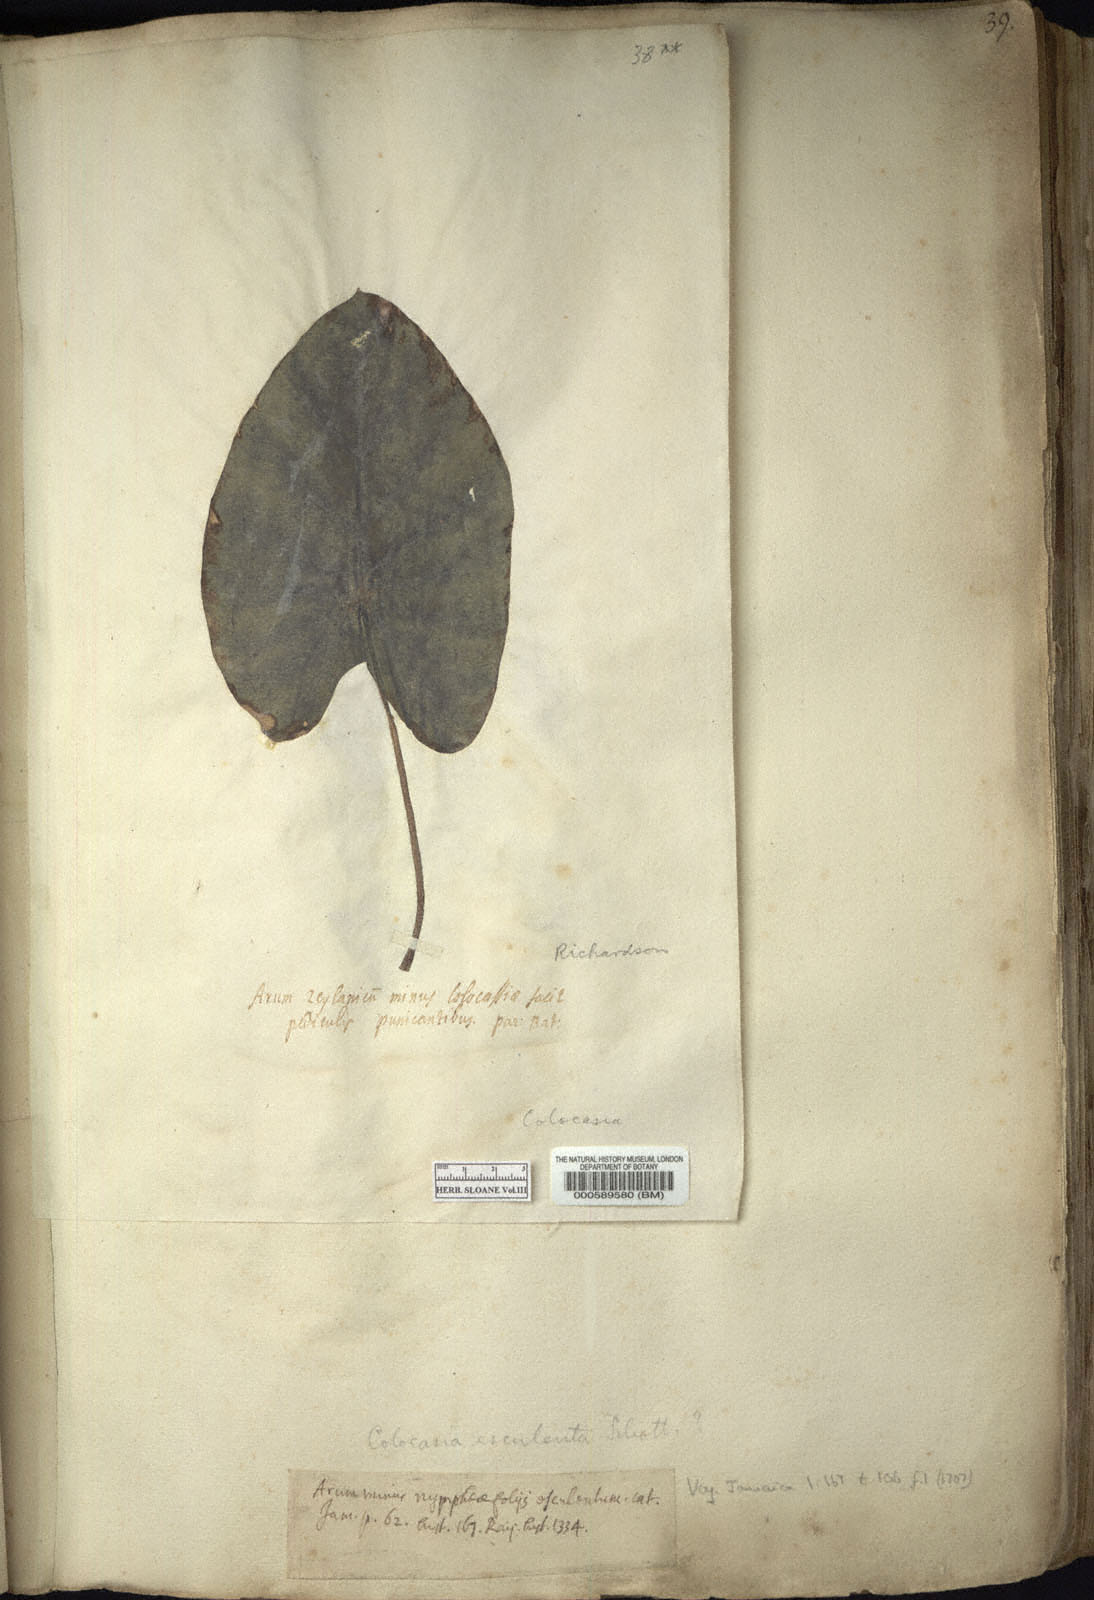 39.
38
Richardson
Arum zeylanicū minus Colocassiæ facie
pediculis punicantibus. par: Bat:
Colocasia
mm 1 2 3
HERB. SLOANE Vol.III
THE NATURAL HISTORY MUSEUM, LONDON
DEPARTMENT OF BOTANY
000589580 (BM)
Colocasia esculenta Schott. ?
Arum minus nymphææ folijs esculentum. cat.
Jam. p. 62. hist. 167. Raij. hist. 1334.
Voy. Jamaica 1: 167 t. 106 f.1 (1707)